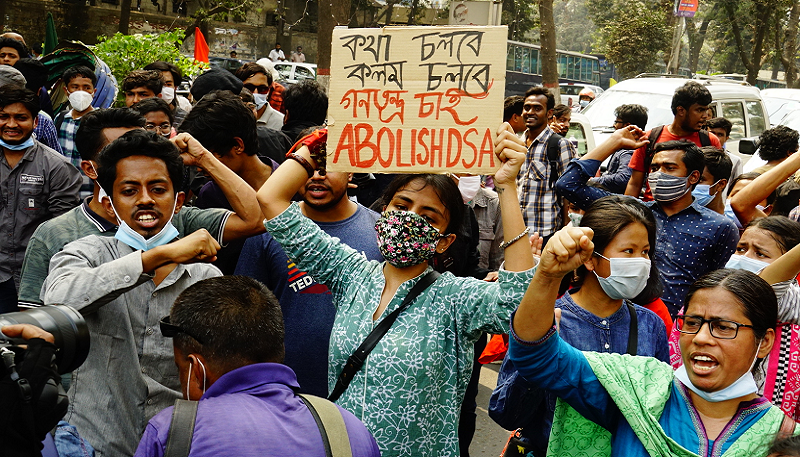 কথা চলবে
কলম চলবে
গনতন্ত্র চাই
ABOLISHDSA